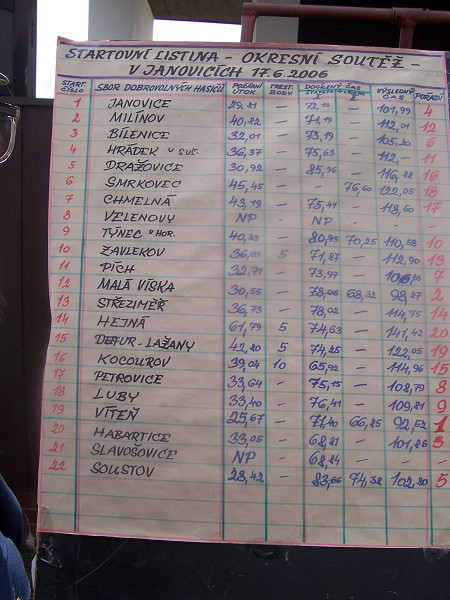 STARTOVNÍ LISTINA - OKRESNÍ SOUTĚŽ -
V JANOVICÍCH 17.6.2006
START. ČÍSLO SBOR DOBROVOLNÝCH HASIČŮ POŽÁRNÍ ÚTOK TREST. BODY DOCÍLENÝ ČAS ŠTAFETA 2 VÝSLEDNÝ ČAS POŘADÍ
1 JANOVICE 29,81 — 72,18 — 101,99 4
2 MILÍNOV 40,82 — 71,19 — 112,01 12
3 BÍLENICE 32,01 — 73,19 — 105,20 6
4 HRÁDEK U SUŠ. 36,37 — 75,63 — 112,- 11
5 DRAŽOVICE 30,92 — 85,96 — 116,88 16
6 SMRKOVEC 45,45 — - 76,60 122,05 18
7 CHMELNÁ 43,19 — 75,41 — 118,60 17
8 VELENOVY NP - NP - - -
9 TÝNEC U HOR. 40,33 — 80,95 70,25 110,58 10
10 ZAVLEKOV 36,03 5 71,87 — 112,90 13
11 PÍCH 32,71 — 73,97 — 7
12 MALÁ VÍSKA 30,55 — 68,32 98,87 2
13 STŘEZIMĚŘ 36,73 — 78,02 — 114,75 14
14 HEJNÁ 61,79 5 74,63 — 141,42 20
15 - LAŽANY 42,80 5 74,25 — 122,05 19
16 KOCOUROV 39,04 10 65,92 — 114,96 15
17 PETROVICE 33,64 — 75,15 — 108,79 8
18 LUBY 33,40 — 76,41 — 109,81 9
19 VÍTEŇ 25,67 — 71,40 66,85 92,52 1
20 HABARTICE 33,05 — 68,81 — 101,86 3
21 SLAVOŠOVICE NP — 68,84 — - -
22 SOUSTOV 28,42 — 83,66 74,38 102,80 5